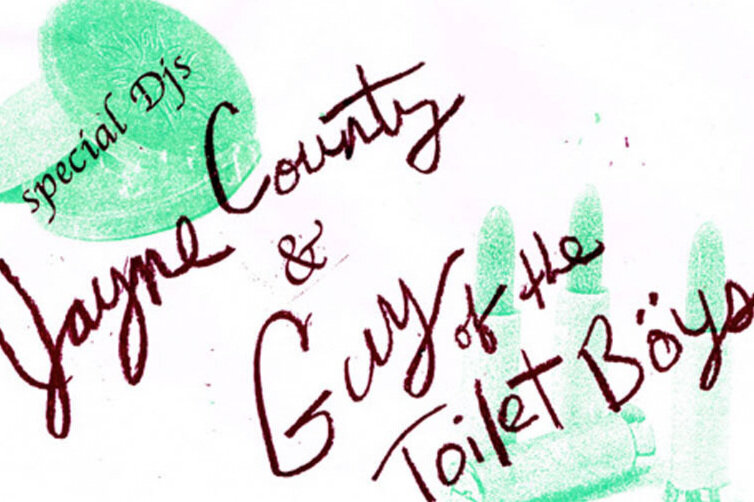 special Djs
Jayne County
&
Guy of the
Toilet Böys